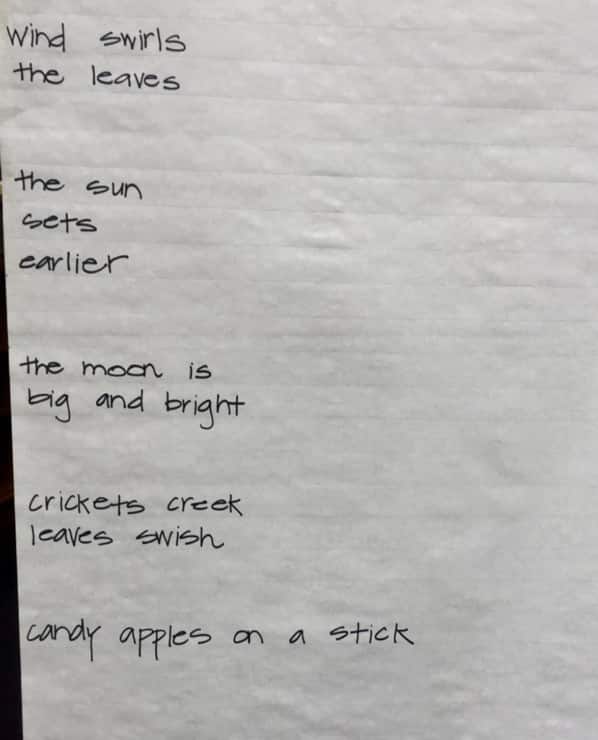 wind swirls
the leaves
the sun
sets
earlier
the moon is
big and bright
crickets creek
leaves swish
candy apples on a stick